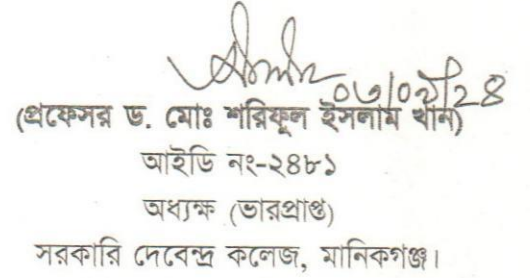 (প্রফেসর ড. মোঃ শরিফুল ইসলাম খান)
আইডি নং-২৪৮১
অধ্যক্ষ (ভারপ্রাপ্ত)
সরকারি দেবেন্দ্র কলেজ, মানিকগঞ্জ।